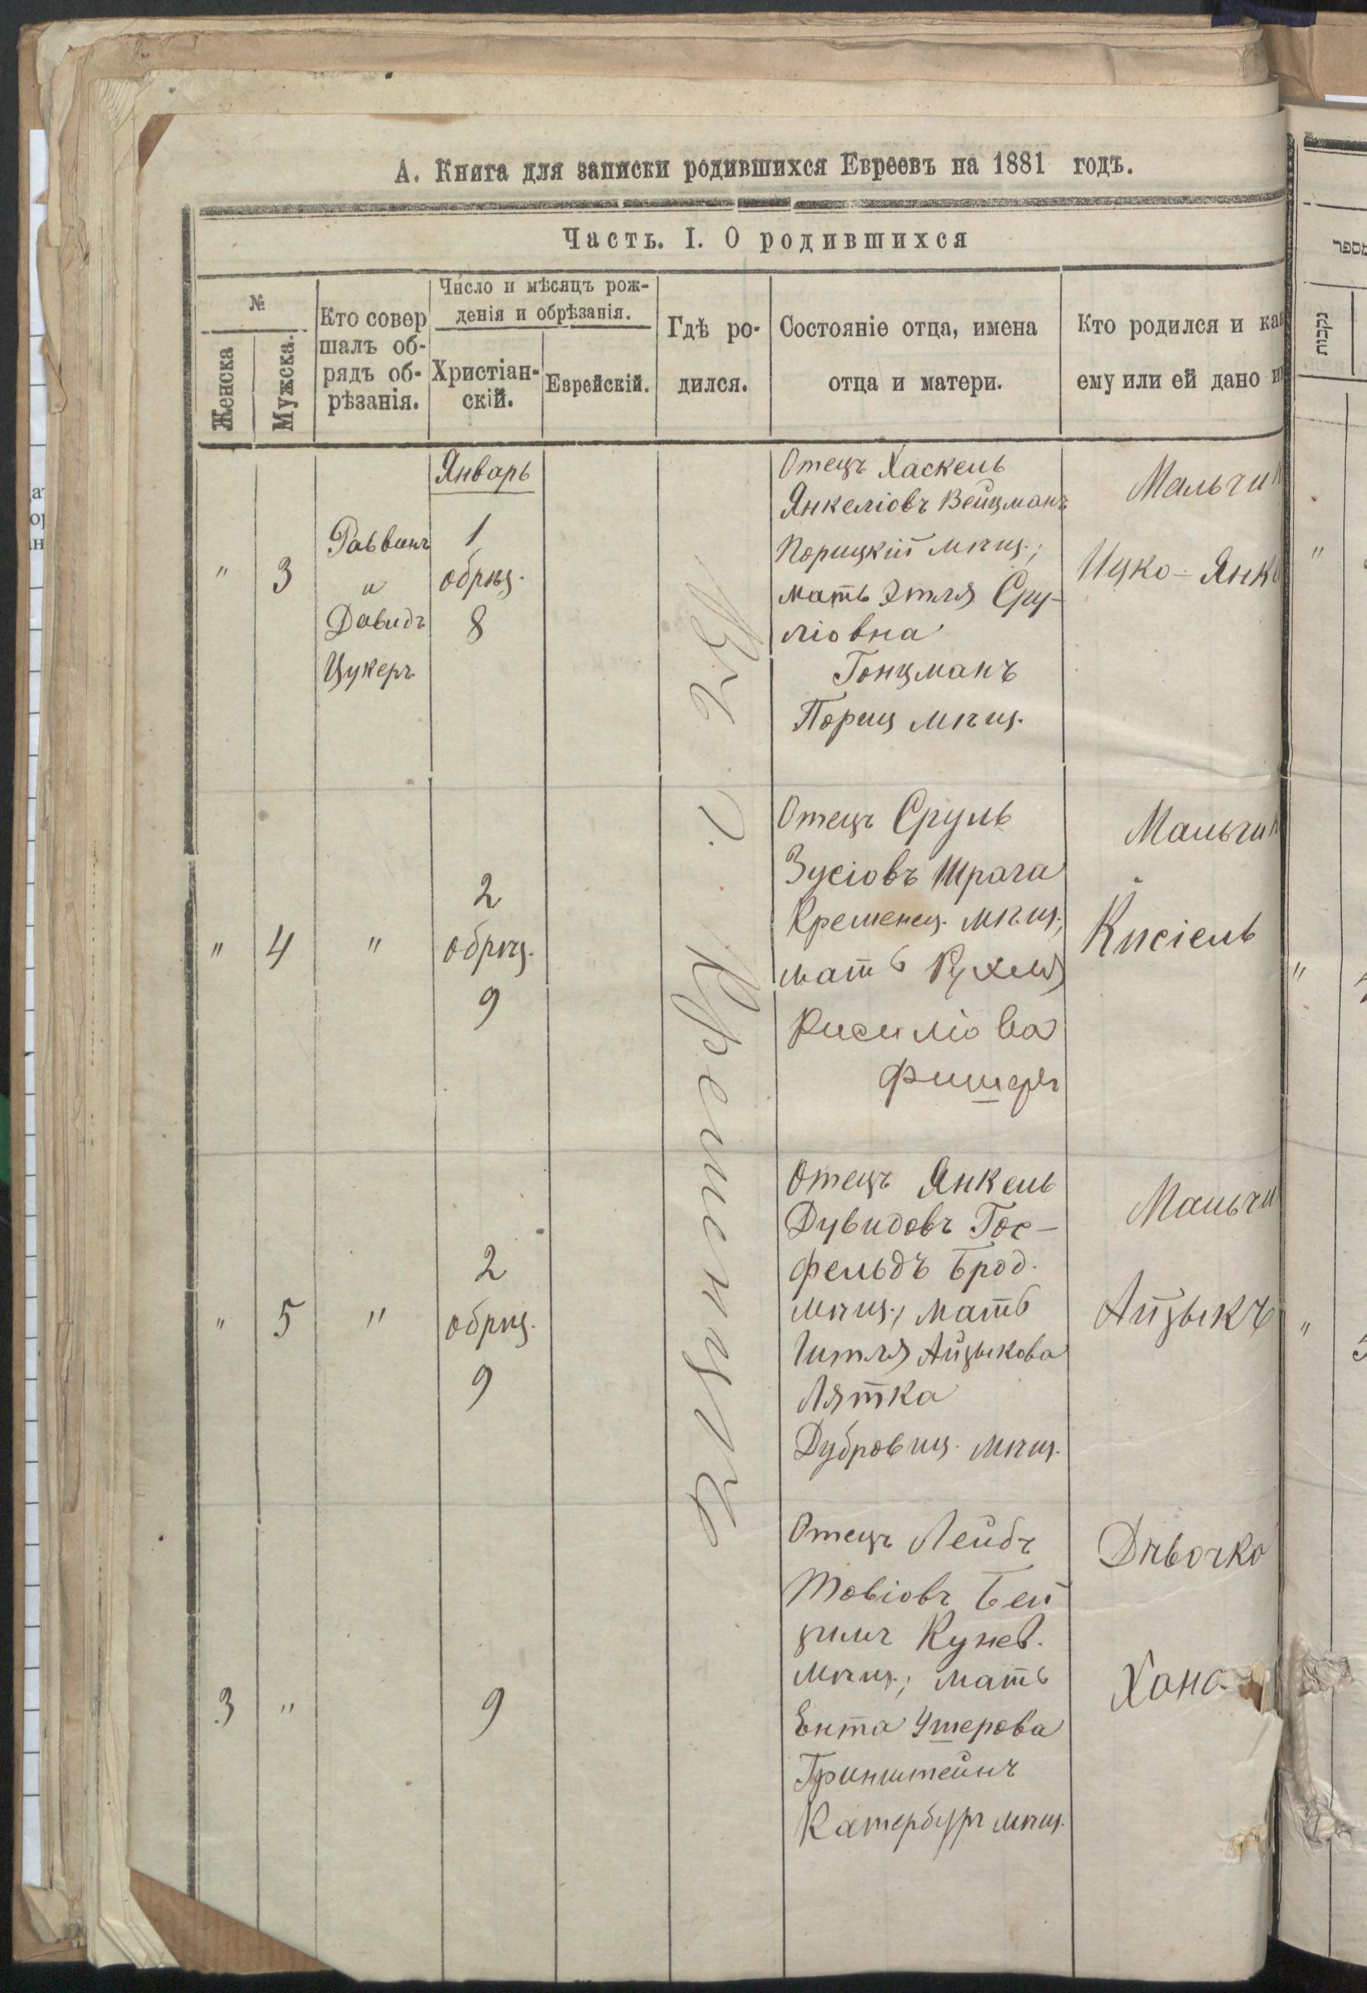 А. Книга для записки родившихся Евреевъ на 1881 годъ.
Часть. I. О родившихся
№
Женска
Мужска.
Кто совер
шалъ об-
рядъ об-
рѣзанія.
Число и мѣсяцъ рож-
денія и обрѣзанія.
Христіан-
скій.
Еврейскій.
Гдѣ ро-
дился.
Состояніе отца, имена
отца и матери.
Кто родился и ка
ему или ей дано и
"
3
Раввинъ
и
Давидъ
Цукеръ
Январь
1
обрѣз.
8
Въ г. Кременцѣ
Отецъ Хаскель
Янкеліовъ Вейцманъ
Порицкій мѣщ.;
мать Этля Сру-
ліовна
Гонцманъ
Пориц мѣщ.
Мальчик
Ицко-Янк
"
4
"
2
обрѣз.
9
Отецъ Сруль
Зусіовъ Шрага
Кременец. мѣщ.,
мать Рухля
Кисиліова
Фишеръ
Мальчик
Кисіель
"
5
"
2
обрѣз.
9
Отецъ Янкель
Дувидовъ Гос-
фельдъ Брод.
мѣщ., мать
Гитля Айзыкова
Лятка
Дубровиц. мѣщ.
Мальчи
Айзыкъ
3
"
9
Отецъ Лейбъ
Товіовъ Бей
Кунев.
мѣщ.; мать
Ента Ушерова
Гринштейнъ
Катербург мѣщ.
Дѣвочка
Хана
מספר
נקבות
"
"
"